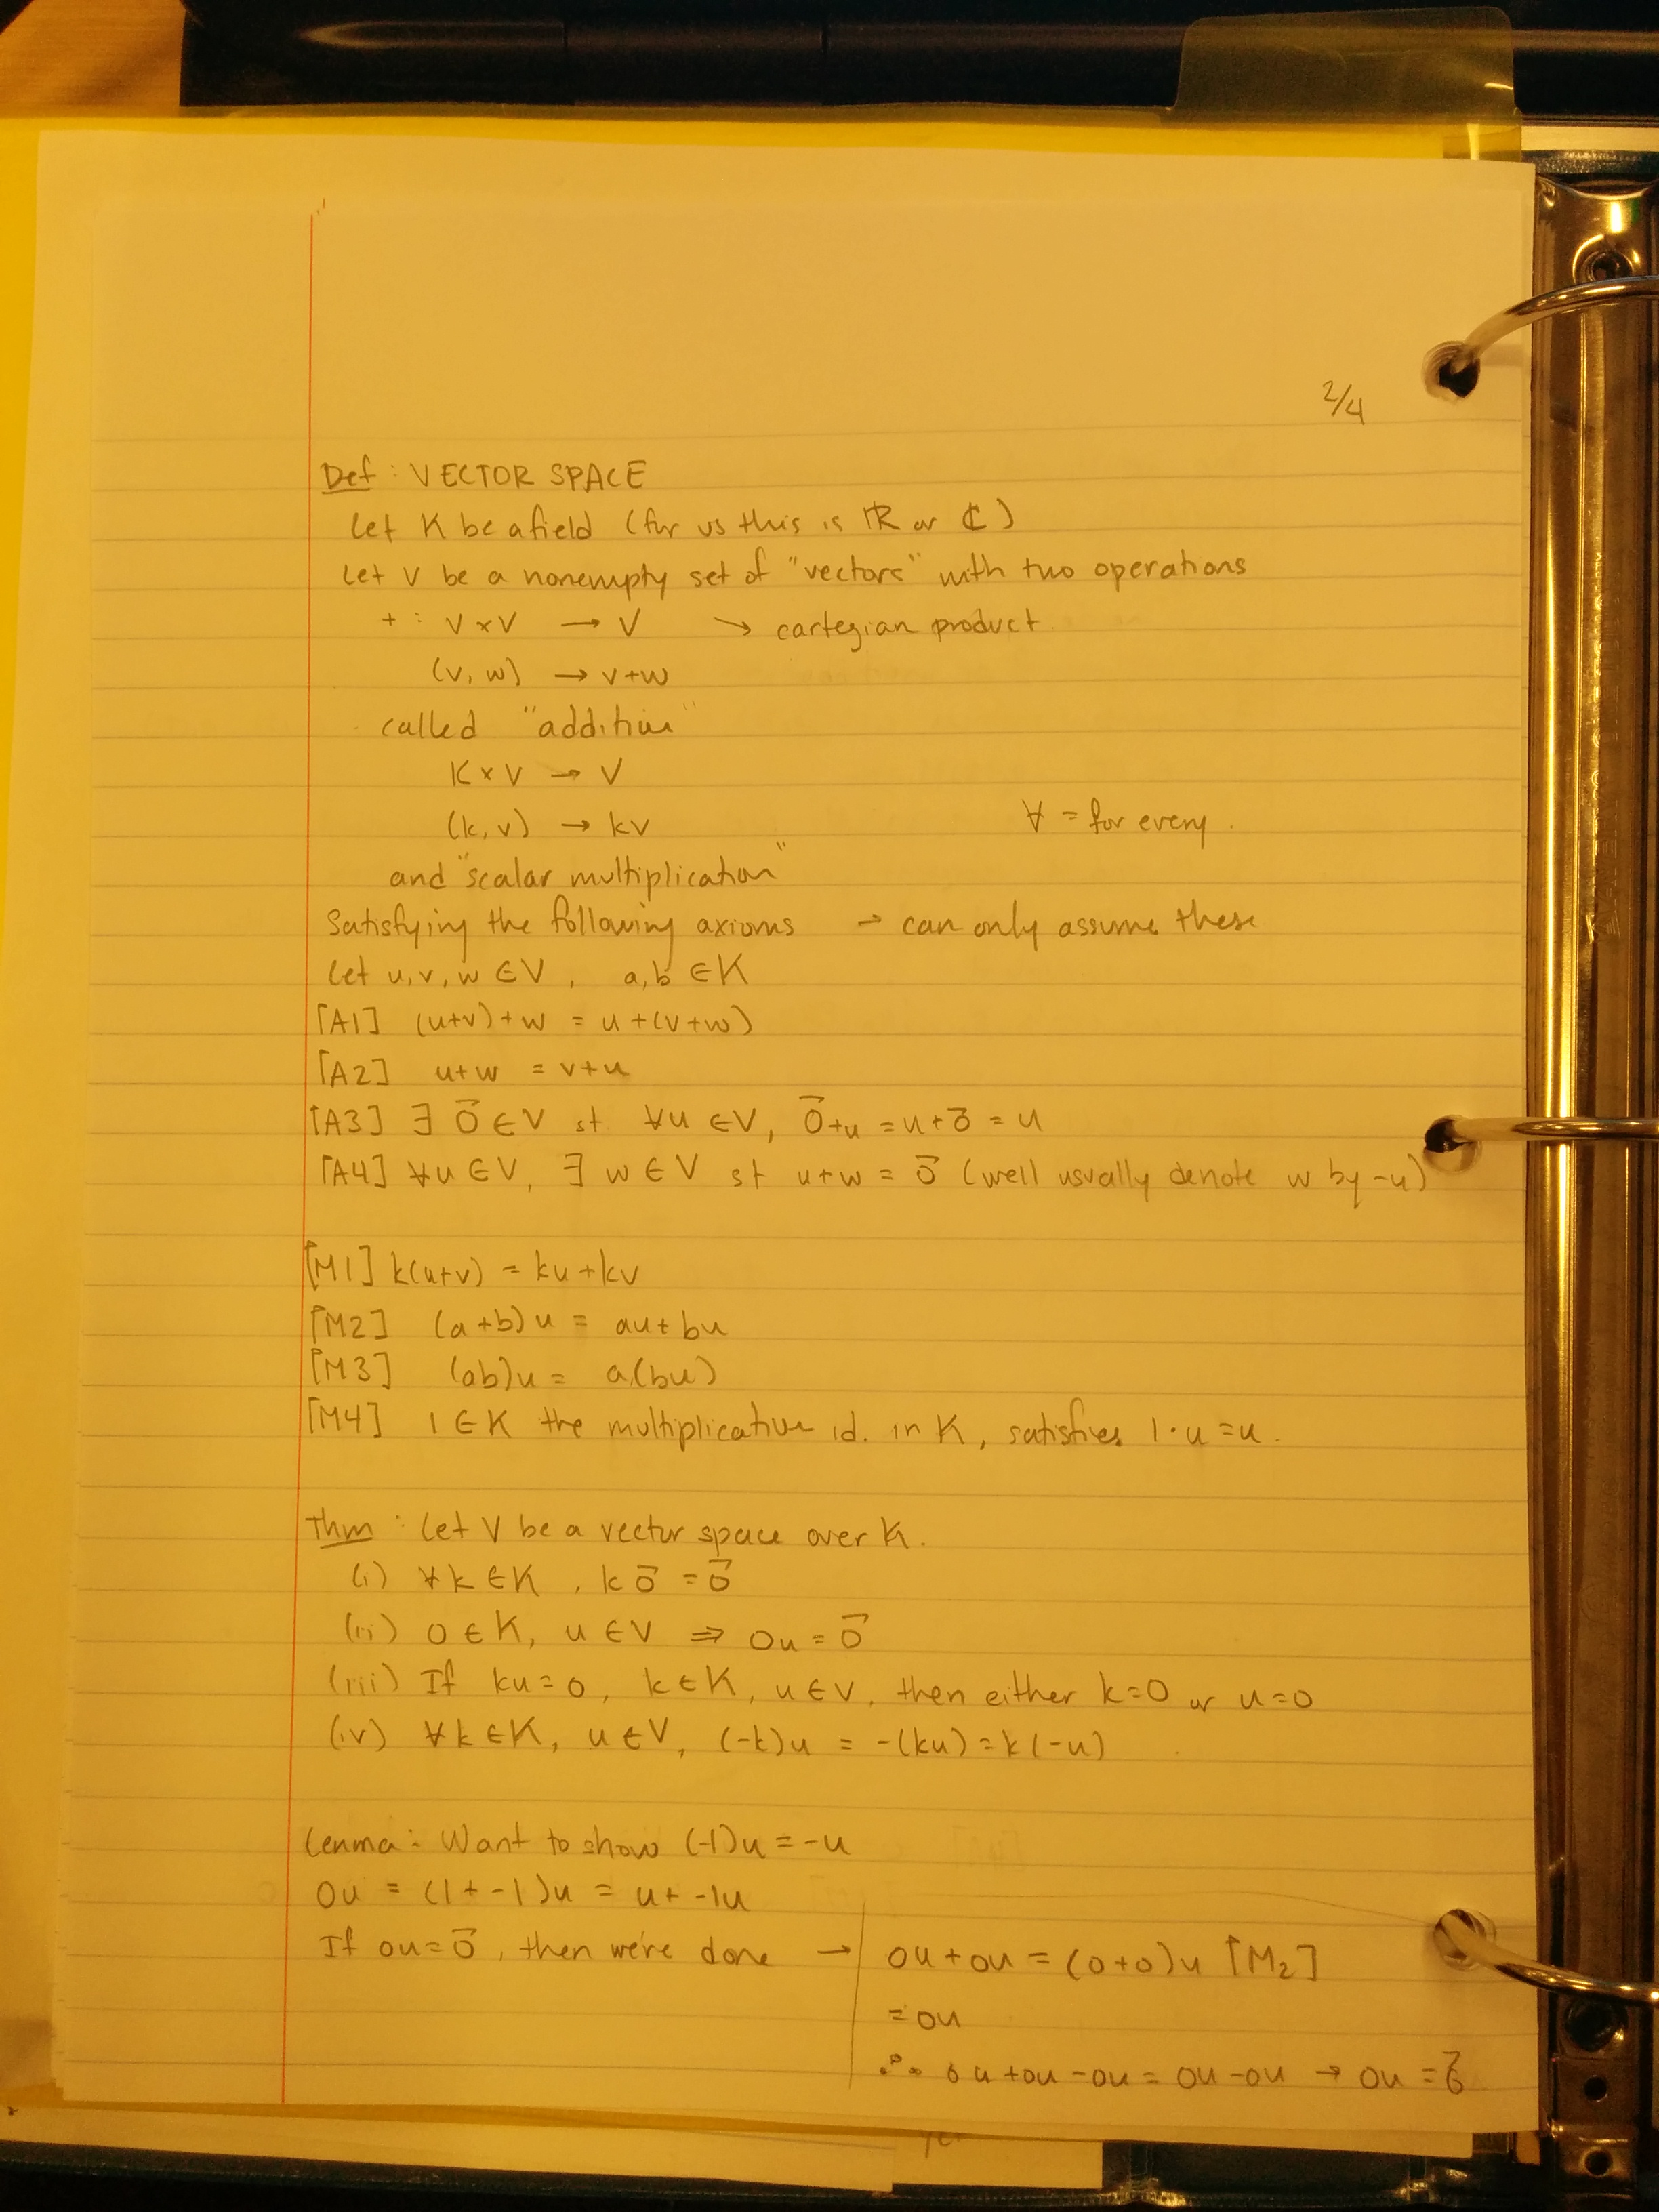 2/4
Def: VECTOR SPACE
Let K be a field (for us this is ℝ or ℂ)
Let V be a nonempty set of "vectors" with two operations
+: V×V → V → cartesian product
(v, w) → v+w
called "addition"
K×V → V
(k, v) → kv ∀ = for every.
and "scalar multiplication"
Satisfying the following axioms → can only assume these
Let u,v,w ∈V, a,b ∈K
[A1] (u+v)+w = u+(v+w)
[A2] u+w = v+u
[A3] ∃ 0⃗ ∈V st ∀u ∈V, 0⃗+u = u+0⃗ = u
[A4] ∀u ∈V, ∃ w ∈V st u+w = 0⃗ (well usually denote w by -u)
[M1] k(u+v) = ku+kv
[M2] (a+b)u = au+bu
[M3] (ab)u = a(bu)
[M4] 1 ∈K the multiplicative id. in K, satisfies 1·u=u.
Thm: Let V be a vector space over K.
(i) ∀k ∈K, k0⃗ = 0⃗
(ii) 0 ∈K, u ∈V ⇒ 0u = 0⃗
(iii) If ku=0, k∈K, u∈V, then either k=0 or u=0
(iv) ∀k ∈K, u ∈V, (-k)u = -(ku) = k(-u)
Lemma: Want to show (-1)u = -u
0u = (1+-1)u = u+-1u
If 0u=0⃗, then we're done → 0u+0u = (0+0)u [M2]
= 0u
∴ 0u+0u-0u = 0u-0u → 0u = 0⃗